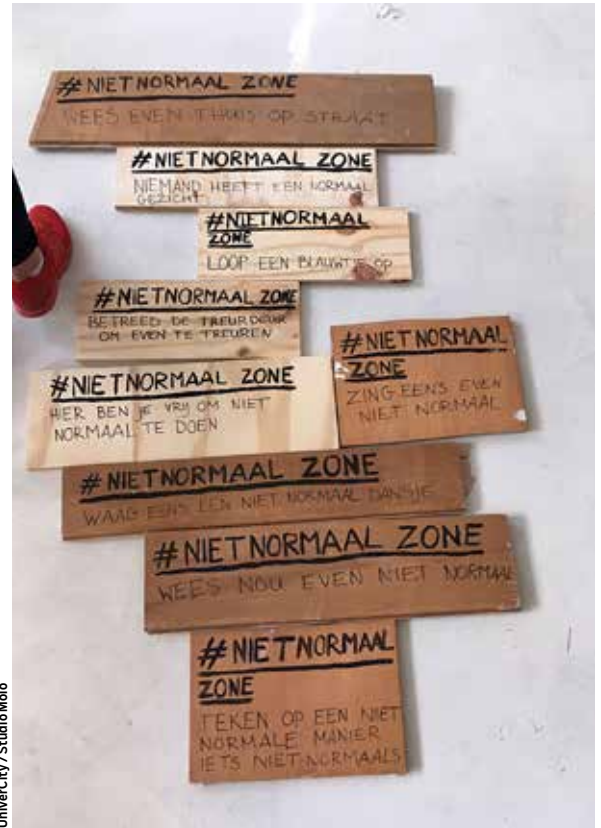 #NIETNORMAAL ZONE
WEES EVEN THUIS OP STRAAT
#NIETNORMAAL ZONE
NIEMAND HEEFT EEN NORMAAL
GEZICHT
#NIETNORMAAL
ZONE
LOOP EEN BLAUWTJE OP
#NIETNORMAAL ZONE
BETREED DE TREURDEUR
OM EVEN TE TREUREN
#NIETNORMAAL
ZONE
ZING EENS EVEN
NIET NORMAAL
#NIETNORMAAL ZONE
HIER BEN JE VRIJ OM NIET
NORMAAL TE DOEN
#NIETNORMAAL ZONE
WAAG EENS EEN NIET NORMAAL DANSJE
#NIETNORMAAL ZONE
WEES NOU EVEN NIET NORMAAL
#NIETNORMAAL
ZONE
TEKEN OP EEN NIET
NORMALE MANIER
IETS NIET-NORMAALS
UniverCity / Studio Moio